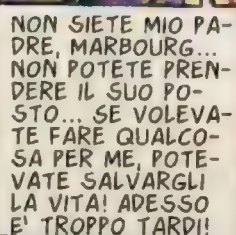 NON SIETE MIO PA-
DRE, MARBOURG...
NON POTETE PREN-
DERE IL SUO PO-
STO... SE VOLEVA-
TE FARE QUALCO-
SA PER ME, POTE-
VATE SALVARGLI
LA VITA! ADESSO
E' TROPPO TARDI!